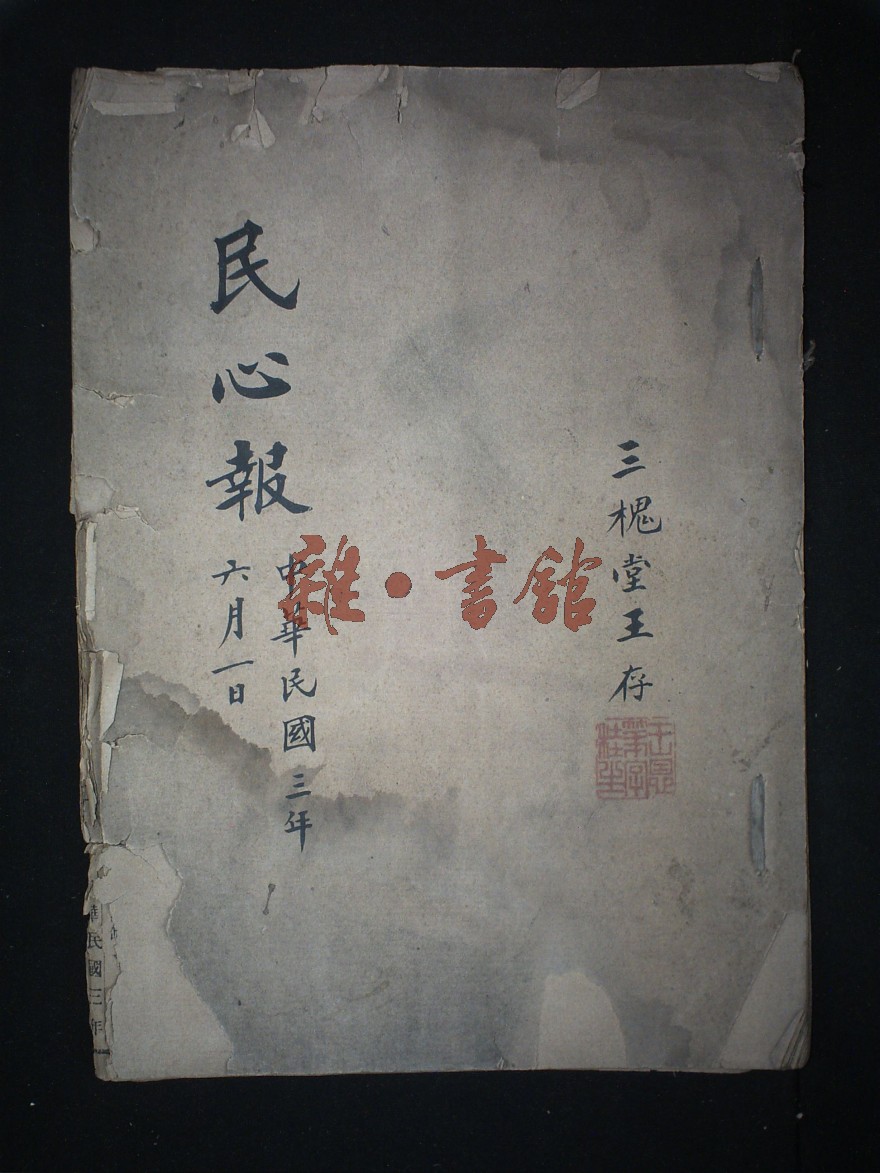 三槐堂王存
中華民國三年
民心報
六月一日
雜·書館
華民國三年